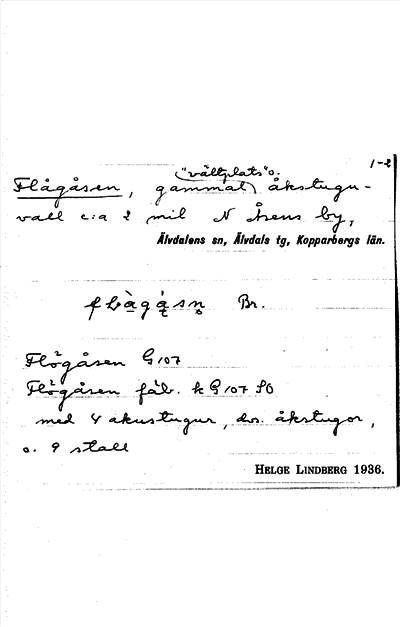 1-2
"vältplats" o.
Flågåsen, gammal åkstugu-
vall c:a 2 mil N Åsens by,
Älvdalens sn, Älvdals tg, Kopparbergs län.
Br.
Flögåsen G 107
Flögåsen fäb. k G 107 SO
med 4 akustugur, dvs. åkstugor,
o. 9 stall
HELGE LINDBERG 1936.